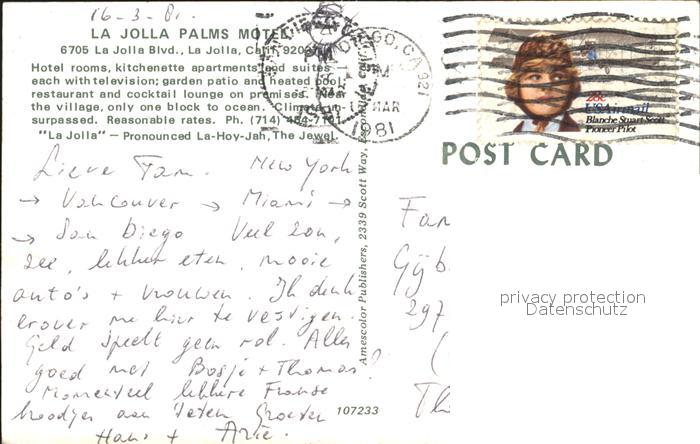 16-3-81.
LA JOLLA PALMS MOTEL
6705 La Jolla Blvd., La Jolla, Calif. 9203
Hotel rooms, kitchenette apartments and suites
each with television; garden patio and heated pool;
restaurant and cocktail lounge on premises. Near
the village, only one block to ocean. Climate un-
surpassed. Reasonable rates. Ph. (714) 454-7101
"La Jolla" — Pronounced La-Hoy-Jah, The Jewel.
Lieve Fam. New York
→ Vancouver → Miami →
→ San Diego Veel zon,
zee, lekker eten, mooie
auto's + vrouwen. Ik denk
erover me hier te vestigen.
Geld speelt geen rol. Alles
goed met Bosje + Thomas?
Momenteel lekkere Franse
broodjes aan 't eten Groeten
Hans + Arie.
107233
Amescolor Publishers, 2339 Scott Way, Escondido, Calif.
SAN DIEGO, CA 921
PM
MAR
1981
28c
USAirmail
Blanche Stuart Scott
Pioneer Pilot
POST CARD
Fam
Gijb
297
Th
privacy protection
Datenschutz